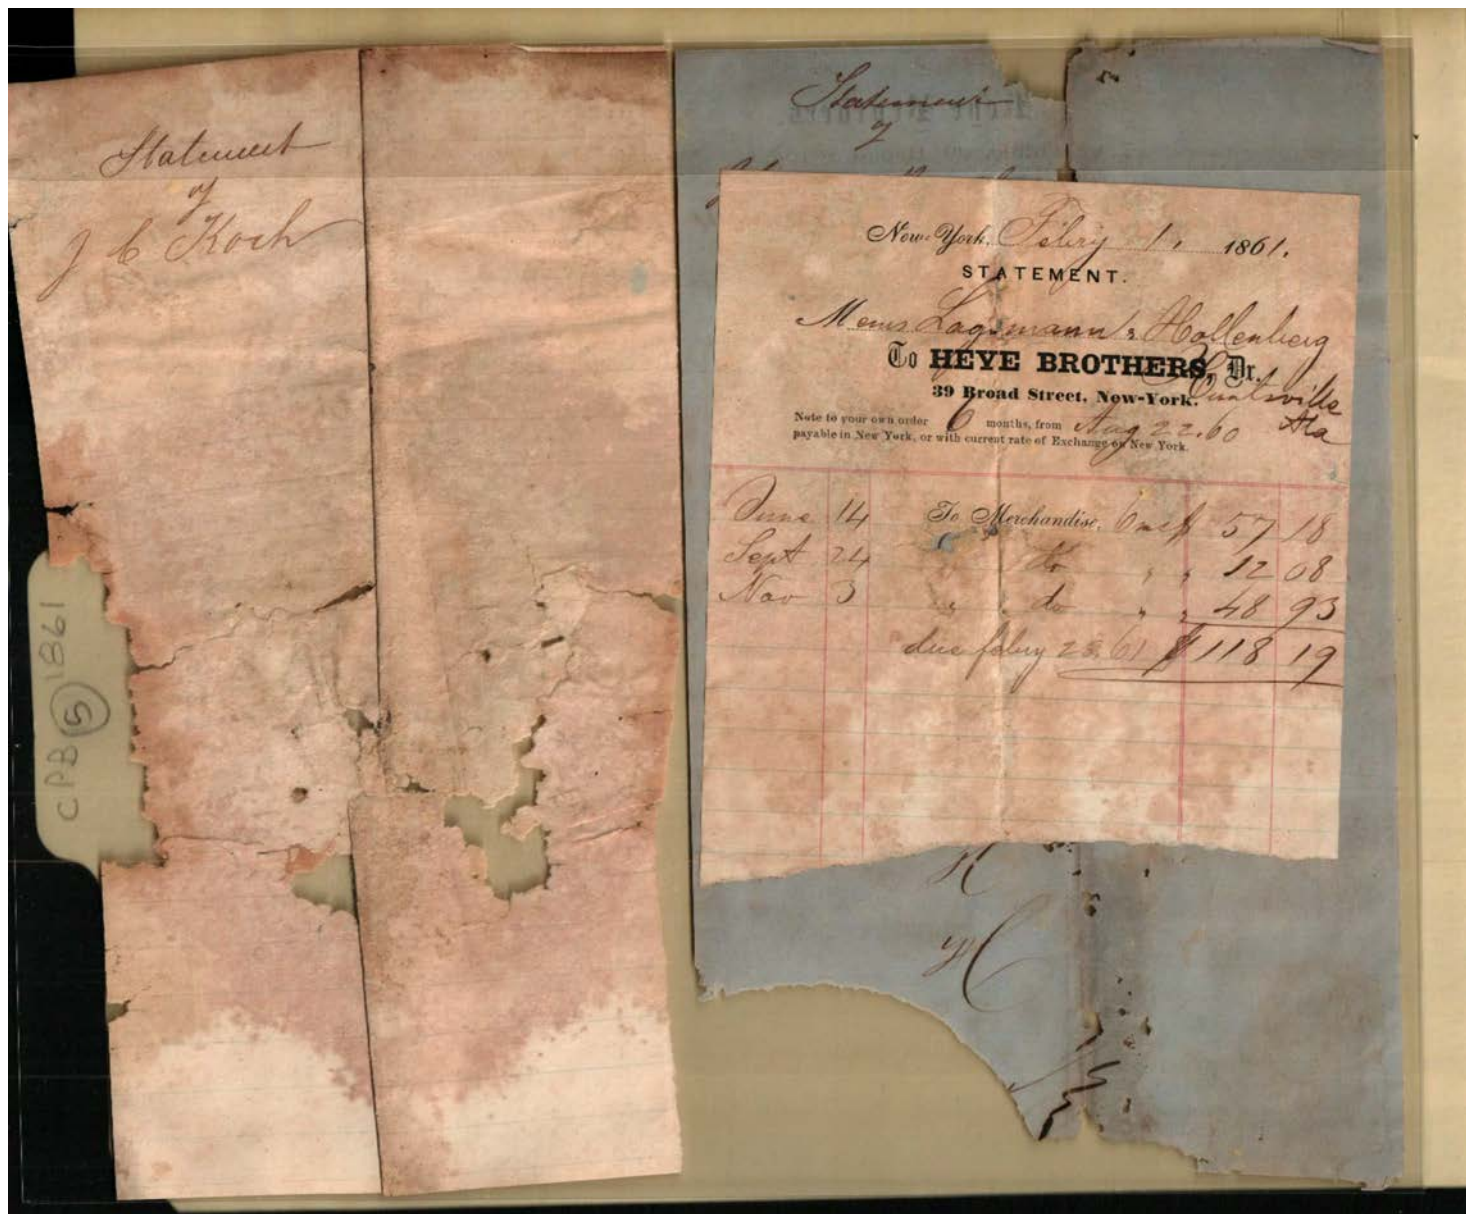 Statement
of
J C Koch
CPB 5 1861
Statement
of
New-York, Febry 1, 1861.
STATEMENT.
Messrs Lagemann & Hollenberg
To HEYE BROTHERS, Dr.
Huntsville
39 Broad Street, New-York.
Ala
Note to your own order 6 months, from Aug 22. 60
payable in New York, or with current rate of Exchange on New York.
June 14 To Merchandise, 6 ms $ 57 18
Sept 24 " do " " 12 08
Nov 3 " " do " " 48 93
due febry 25. 61 $ 118 19